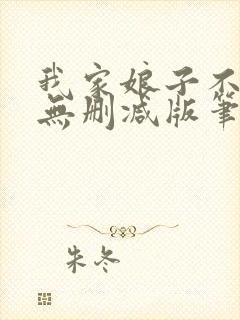 我家娘子不
無刪减版筆
朱冬